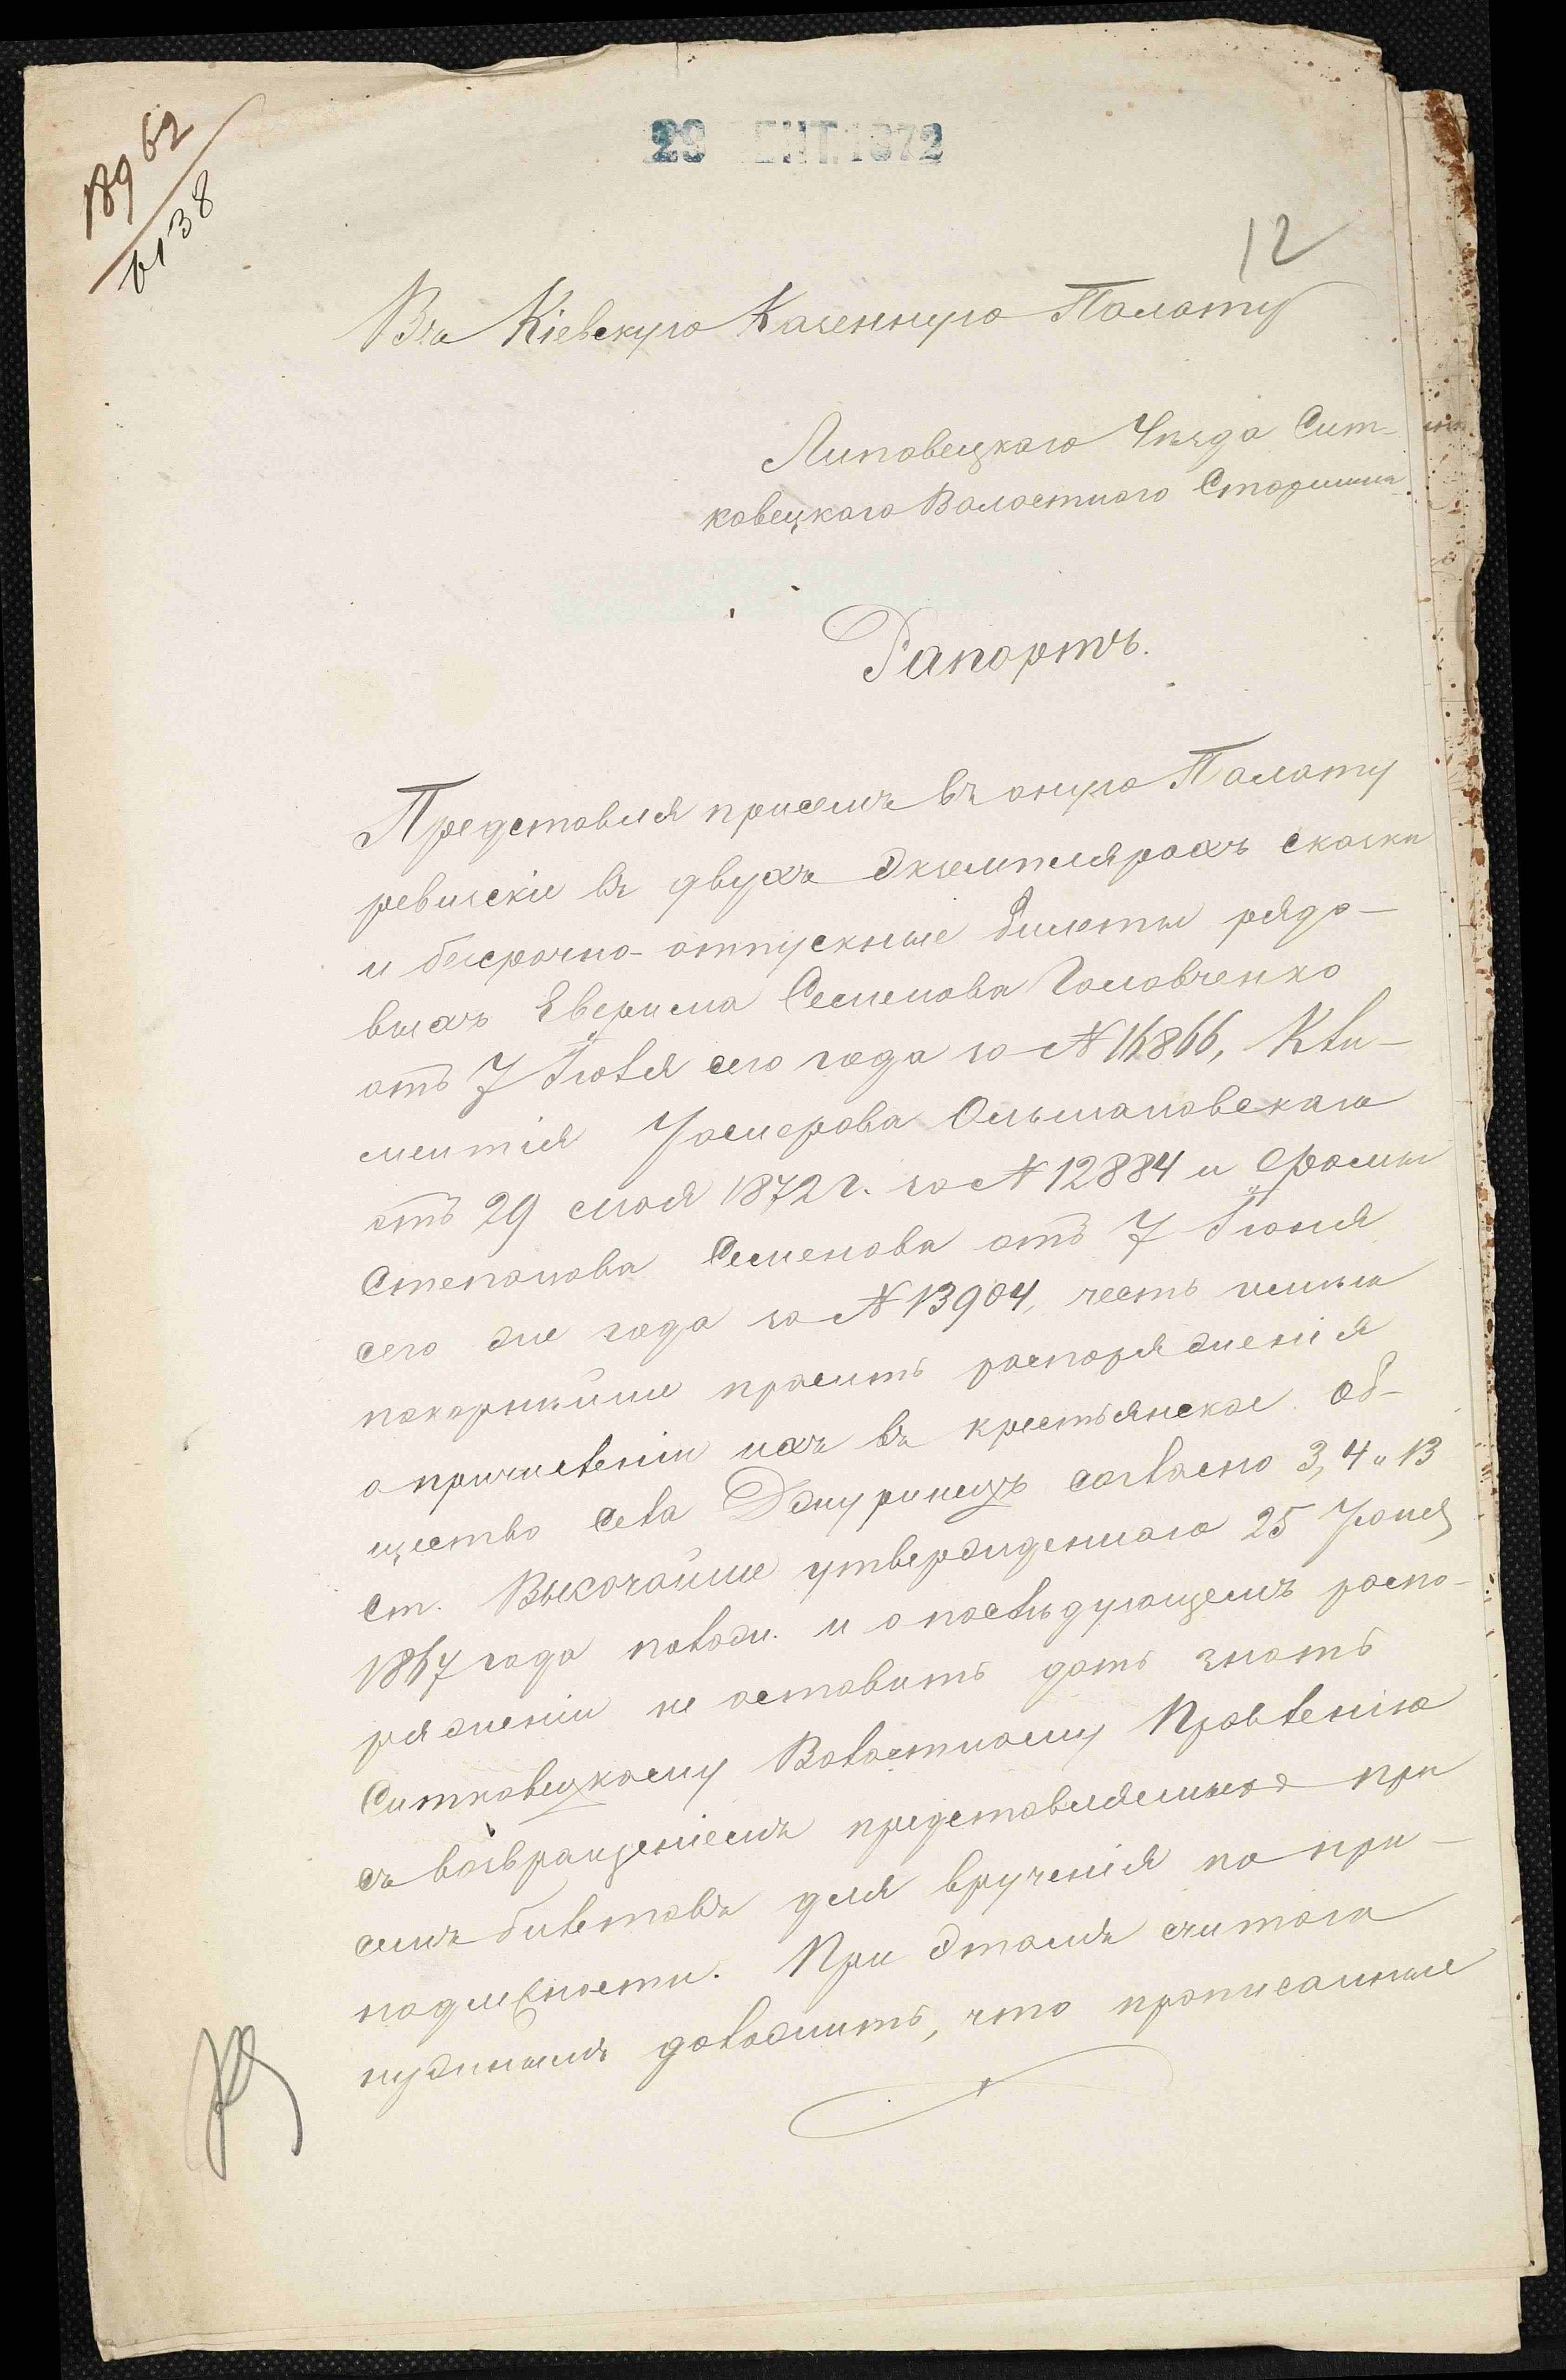 18962
6138
29 СЕНТ. 1872
12
Въ Кіевскую Казенную Палату
Липовецкаго Уѣзда Сит-
ковецкаго Волостнаго Старшины
Рапортъ.
Представляя присемъ въ оную Палату
ревизскіе въ двухъ экземплярахъ сказки
и безсрочно-отпускные билеты рядо-
выхъ Семенова Головченко
отъ 7 Іюля сего года за № 16866, Кли-
ментія Ольшановскаго
отъ 29 мая 1872 г. за № 12884 и Фомы
Степанова Семенова отъ 7 Іюня
сего же года за № 13904, честь имѣю
покорнѣйше просить распоряженія
о причисленіи ихъ въ крестьянское об-
щество села Джуринецъ согласно 3, 4 и 13
ст. Высочайше утвержденнаго 25 Іюня
1867 года полож. и о послѣдующемъ распо-
ряженіи не оставить дать знать
Ситковецкому Волостному Правленію
съ возвращеніемъ представляемыхъ при
семъ билетовъ для врученія по при-
надлежности. При этомъ считаю
нужнымъ доложить, что прописанные